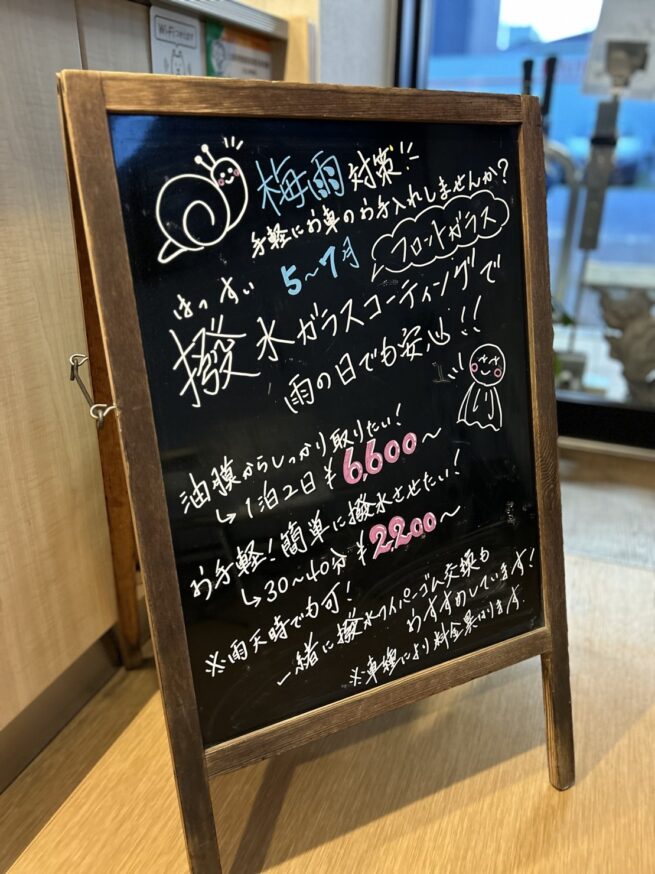 Wi-Fi
梅雨対策!!
手軽にお車のお手入れしませんか?
5〜7月
フロントガラス
はっすい
撥水ガラスコーティングで
雨の日でも安心!!
油膜からしっかり取りたい!
↳1泊2日 ¥6,600〜
お手軽!簡単に撥水させたい!
↳30〜40分 ¥2,200〜
※雨天時でも可!
一緒に撥水ワイパーゴム交換も
おすすめしています!
※車種により料金異なります